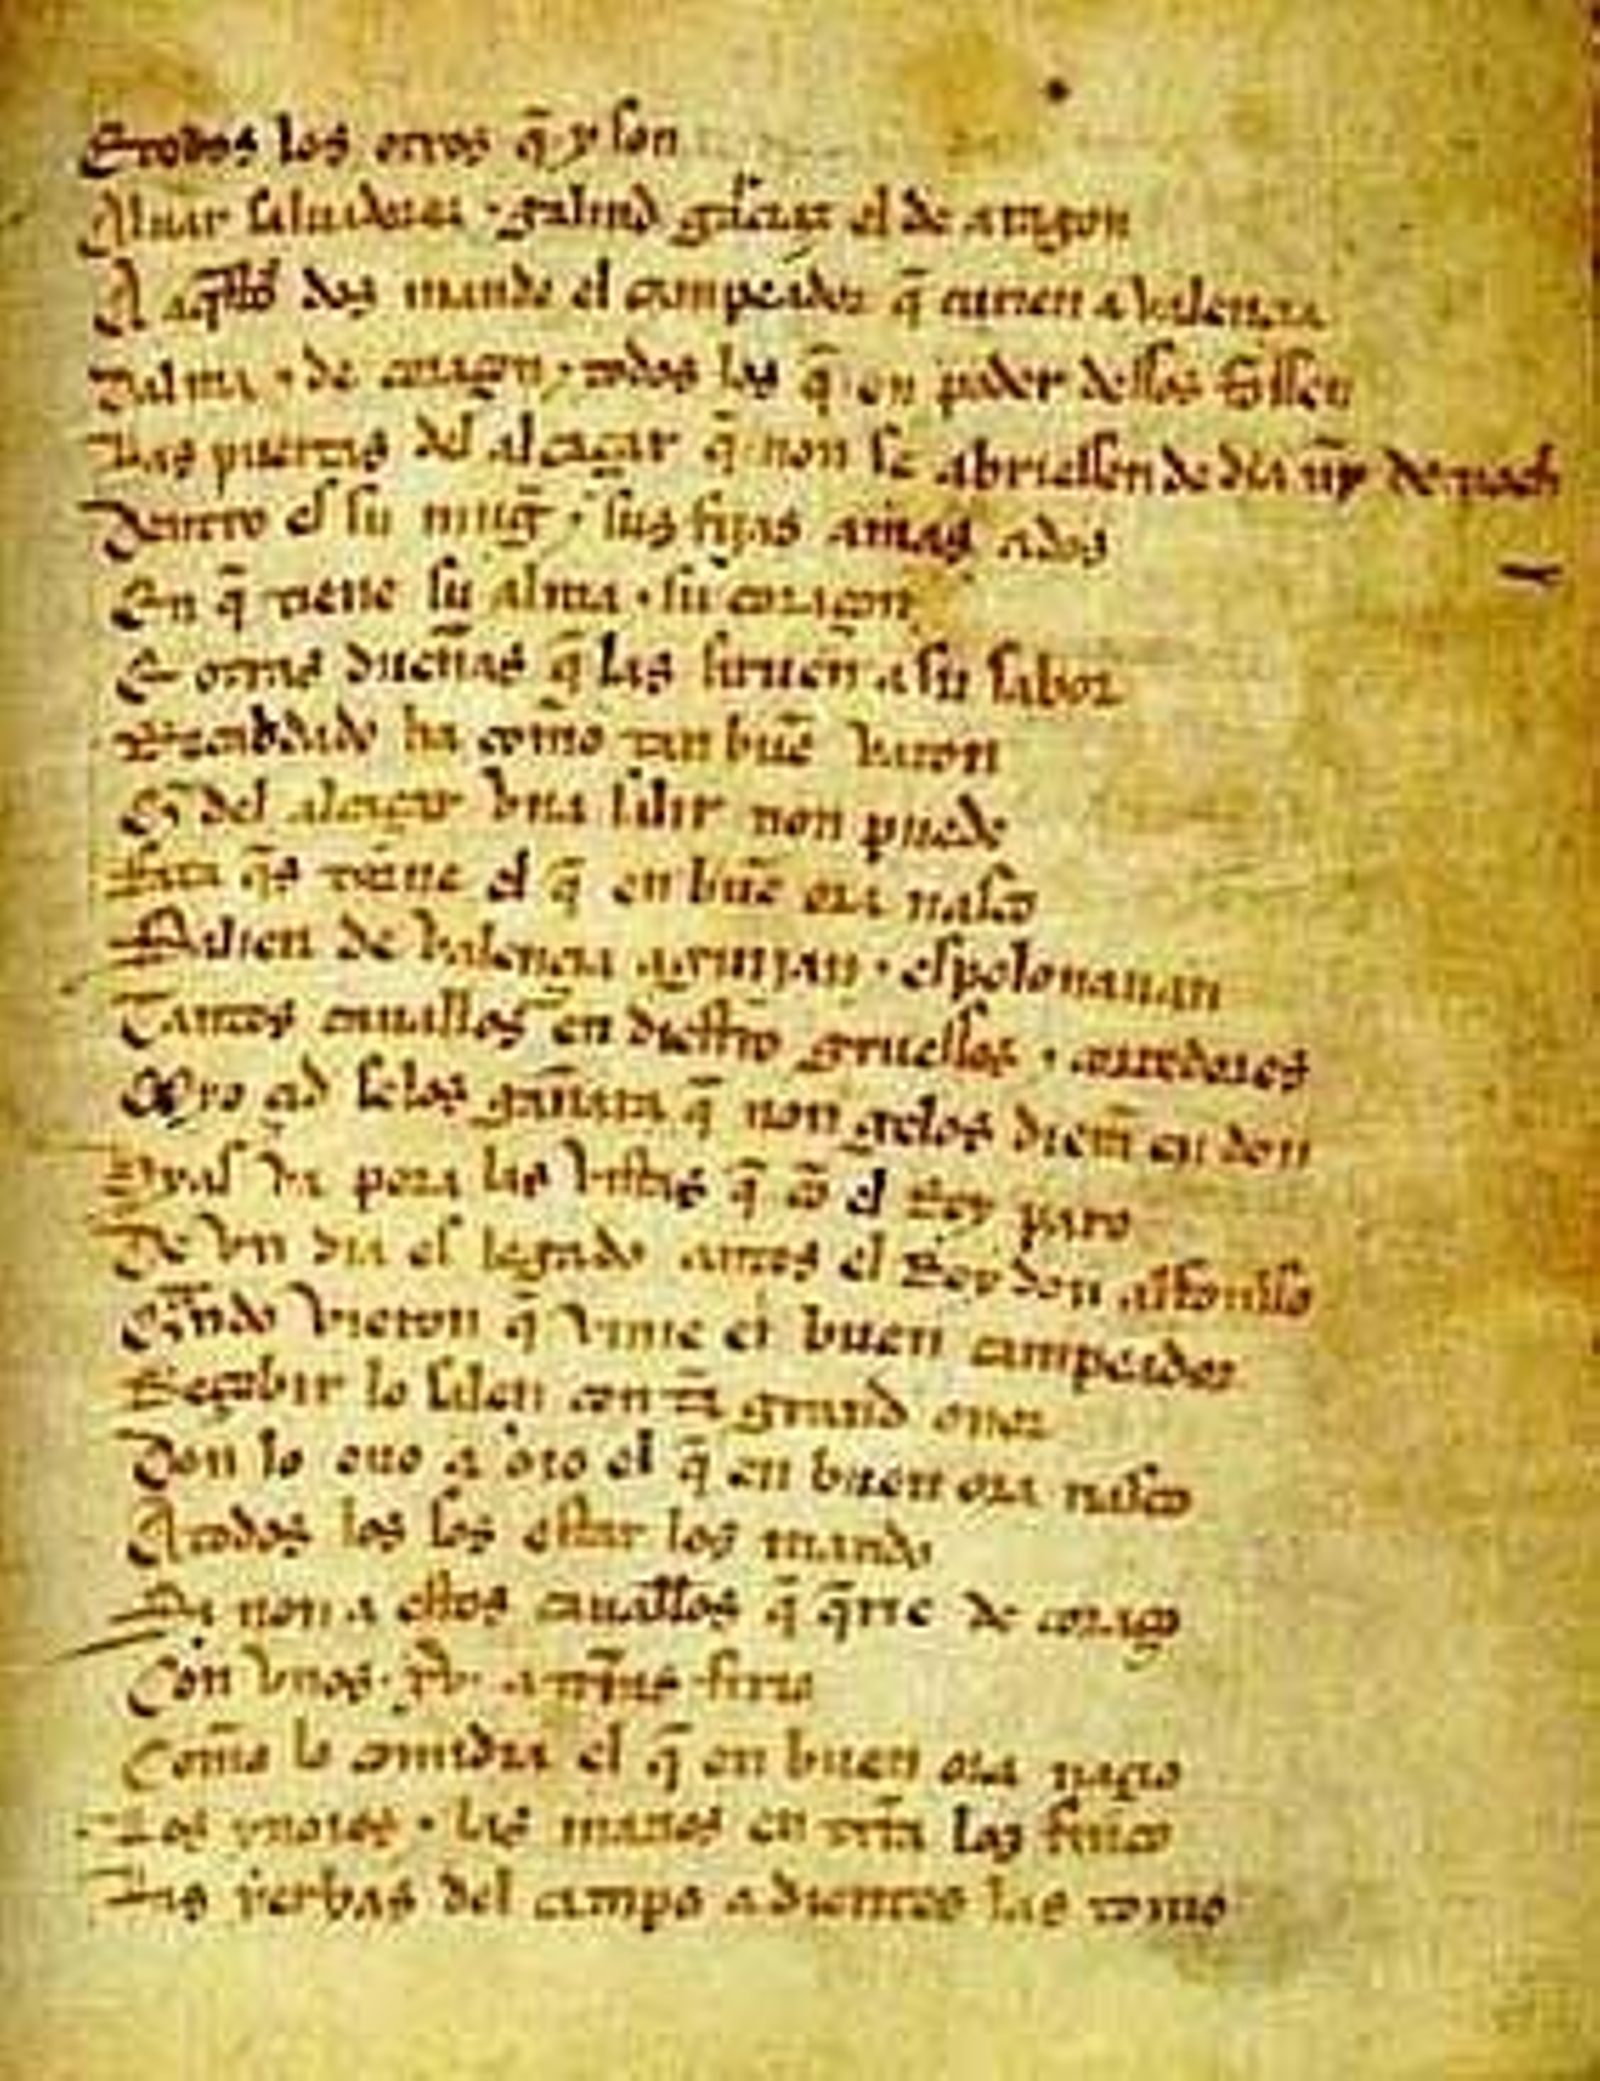 E todos los otros q̃ y son
Aluar saluadorez ⁊ galind garciaz el de aragon
A aq̃stos dos mando el campeador q̃ curien a valençia
Dalma ⁊ de coraçon ⁊ todos los q̃ en poder dessos fossen
Las puertas del alcaçar q̃ non se abriessen de dia nĩ de noch
Dentro es su mugĩer ⁊ sus fijas amas ados
En q̃ tiene su alma ⁊ su coraçon
E otras dueñas q̃ las siruen a su sabor
Recabdado ha como tan buẽ varon
Q̃ del alcaçar vna salir non puede
Fata q̃s torne el q̃ en buẽ ora nasco
Salien de valençia aguijan ⁊ espolonauan
Tantos cauallos en diestro gruessos ⁊ corredores
Myo çid selos gañara q̃ non gelos dierã en don
Hyas va pora las vistas q̃ cõ el Rey paro
De vn dia es legado antes el Rey don alfonsso
Q̃ndo vieron q̃ vinie el buen campeador
Reçebir lo salen con tã grand onor
Don lo ouo a oio el q̃ en buen ora nasco
A todos los sos estar los mando
Si non a estos cauallos q̃ q̃rie de coraço
Con vnos .xv. a tr̃ras firio
Como lo comidia el q̃ en buen ora naçio
Los ynoios ⁊ las manos en trr̃a los finco
Las yerbas del campo a dientes las tomo